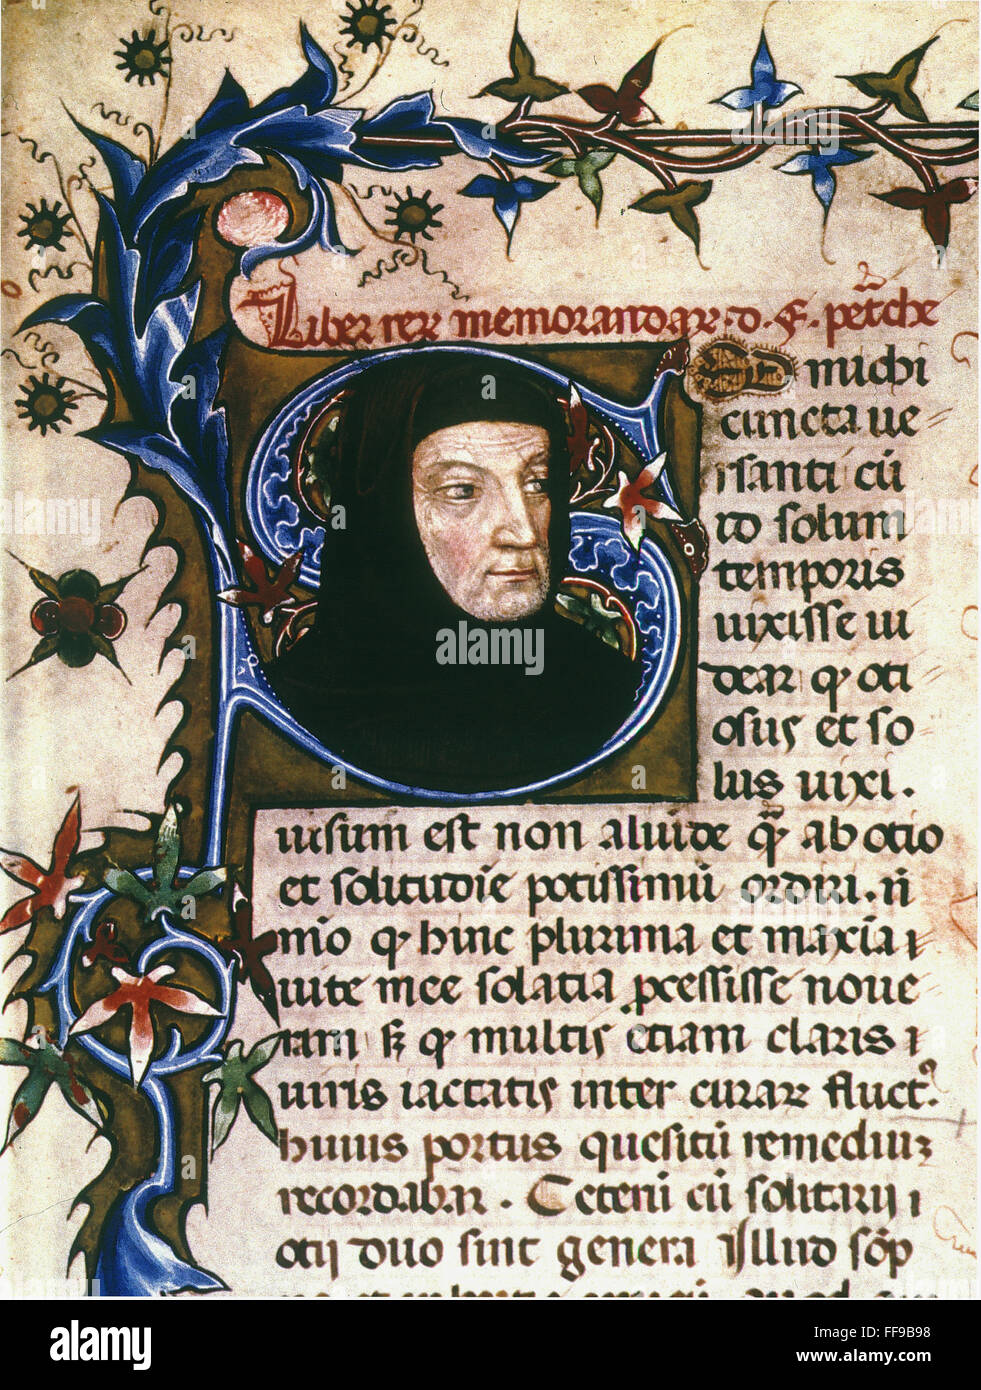 Liber rer memorandar. d. F. petrche
michi
cuncta ue
rsanti cu
id solum
temporis
uixisse ui
dear q oti
osus et so
lus uixi.
uisum est non aliude q ab otio
et solitudie potissimu ordiri. ni
mio q hinc plurima et maxia i
iute mee solatia pcessisse noue
ram s q multis etiam claris i
uiris iactatis inter curar fluct.
huius portus quesitu remediuz
recordabar. Ceteni cu solitarij i
otij duo sint genera Illud sop
alamy
Image ID: FF9B98
www.alamy.com